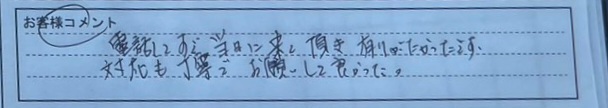 お客様コメント
電話してすぐ当日に来て頂き有りがたかったです。
対応も丁寧でお願いして良かった。